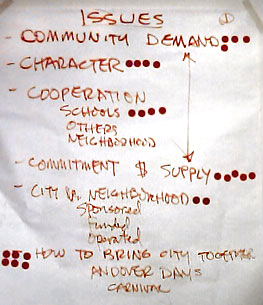 ISSUES ①
- COMMUNITY DEMAND
- CHARACTER
- COOPERATION
SCHOOLS
OTHERS
NEIGHBORHOOD
- COMMITMENT $ SUPPLY
- CITY VS. NEIGHBOURHOOD
Sponsored
Funded
Operated
HOW TO BRING CITY TOGETHER
ANDOVER DAYS
CARNIVAL